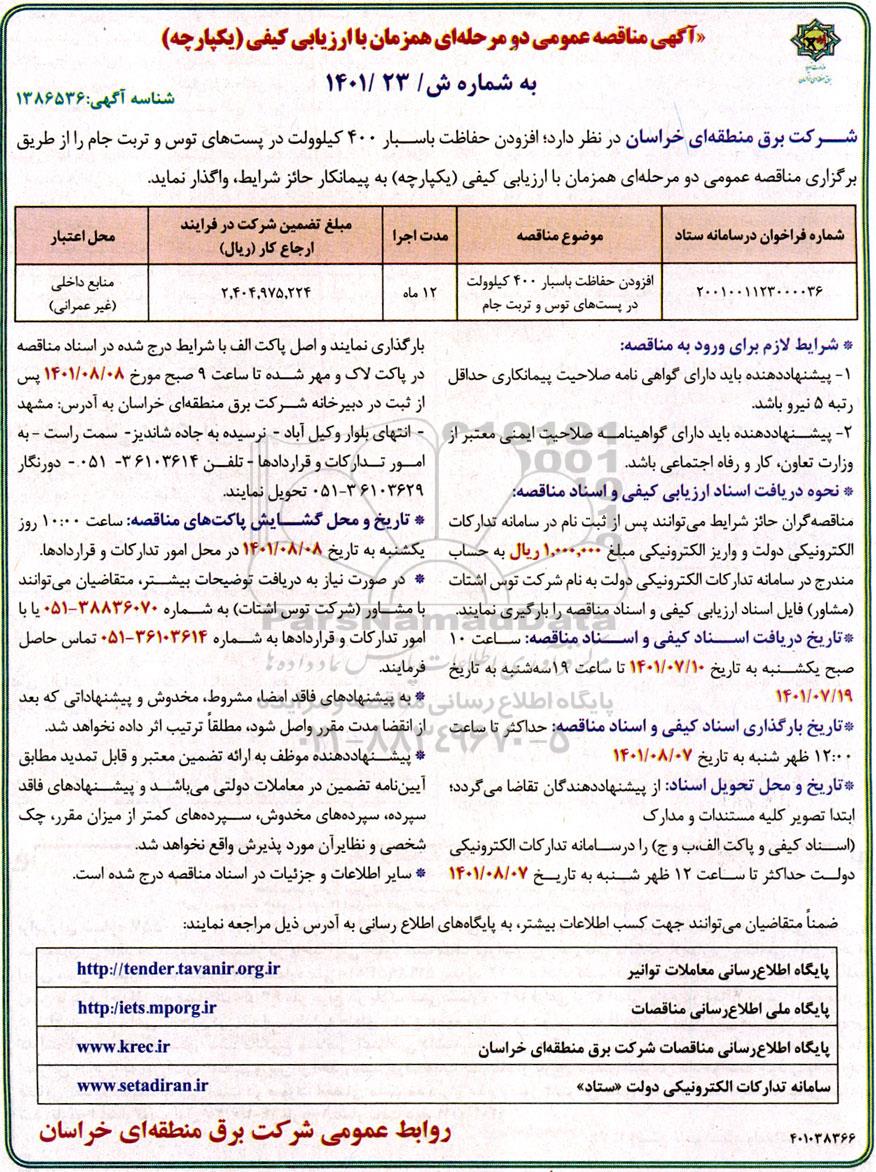 «آگهی مناقصه عمومی دو مرحله‌ای همزمان با ارزیابی کیفی (یکپارچه)
به شماره ش/ ۲۳ /۱۴۰۱
شناسه آگهی:۱۳۸۶۵۳۶
شرکت برق منطقه‌ای خراسان در نظر دارد؛ افزودن حفاظت باسبار ۴۰۰ کیلوولت در پست‌های توس و تربت جام را از طریق
برگزاری مناقصه عمومی دو مرحله‌ای همزمان با ارزیابی کیفی (یکپارچه) به پیمانکار حائز شرایط، واگذار نماید.
شماره فراخوان درسامانه ستاد
موضوع مناقصه
مدت اجرا
مبلغ تضمین شرکت در فرایند
ارجاع کار (ریال)
محل اعتبار
۲۰۰۱۰۰۱۱۲۳۰۰۰۰۳۶
افزودن حفاظت باسبار ۴۰۰ کیلوولت
در پست‌های توس و تربت جام
۱۲ ماه
۲,۴۰۴,۹۷۵,۲۲۴
منابع داخلی
(غیر عمرانی)
* شرایط لازم برای ورود به مناقصه:
۱- پیشنهاددهنده باید دارای گواهی نامه صلاحیت پیمانکاری حداقل
رتبه ۵ نیرو باشد.
۲- پیشنهاددهنده باید دارای گواهینامه صلاحیت ایمنی معتبر از
وزارت تعاون، کار و رفاه اجتماعی باشد.
* نحوه دریافت اسناد ارزیابی کیفی و اسناد مناقصه:
مناقصه‌گران حائز شرایط می‌توانند پس از ثبت نام در سامانه تدارکات
الکترونیکی دولت و واریز الکترونیکی مبلغ ۱,۰۰۰,۰۰۰ ریال به حساب
مندرج در سامانه تدارکات الکترونیکی دولت به نام شرکت توس اشتات
(مشاور) فایل اسناد ارزیابی کیفی و اسناد مناقصه را بارگیری نمایند.
*تاریخ دریافت اسناد کیفی و اسناد مناقصه: ساعت ۱۰
صبح یکشنبه به تاریخ ۱۴۰۱/۰۷/۱۰ تا ساعت ۱۹سه‌شنبه به تاریخ
۱۴۰۱/۰۷/۱۹
*تاریخ بارگذاری اسناد کیفی و اسناد مناقصه: حداکثر تا ساعت
۱۲:۰۰ ظهر شنبه به تاریخ ۱۴۰۱/۰۸/۰۷
*تاریخ و محل تحویل اسناد: از پیشنهاددهندگان تقاضا می‌گردد؛
ابتدا تصویر کلیه مستندات و مدارک
(اسناد کیفی و پاکت الف،ب و ج) را درسامانه تدارکات الکترونیکی
دولت حداکثر تا ساعت ۱۲ ظهر شنبه به تاریخ ۱۴۰۱/۰۸/۰۷
بارگذاری نمایند و اصل پاکت الف با شرایط درج شده در اسناد مناقصه
در پاکت لاک و مهر شده تا ساعت ۹ صبح مورخ ۱۴۰۱/۰۸/۰۸ پس
از ثبت در دبیرخانه شرکت برق منطقه‌ای خراسان به آدرس: مشهد
- انتهای بلوار وکیل آباد - نرسیده به جاده شاندیز- سمت راست - به
امور تدارکات و قراردادها - تلفن ۳۶۱۰۳۶۱۴- ۰۵۱ - دورنگار
۰۵۱-۳۶۱۰۳۶۲۹ تحویل نمایند.
* تاریخ و محل گشایش پاکت‌های مناقصه: ساعت ۱۰:۰۰ روز
یکشنبه به تاریخ ۱۴۰۱/۰۸/۰۸ در محل امور تدارکات و قراردادها.
* در صورت نیاز به دریافت توضیحات بیشتر، متقاضیان می‌توانند
با مشاور (شرکت توس اشتات) به شماره ۰۵۱-۳۸۸۳۶۰۷۰ یا با
امور تدارکات و قراردادها به شماره ۰۵۱-۳۶۱۰۳۶۱۴ تماس حاصل
فرمایند.
* به پیشنهادهای فاقد امضا، مشروط، مخدوش و پیشنهاداتی که بعد
از انقضا مدت مقرر واصل شود، مطلقاً ترتیب اثر داده نخواهد شد.
* پیشنهاددهنده موظف به ارائه تضمین معتبر و قابل تمدید مطابق
آیین‌نامه تضمین در معاملات دولتی می‌باشد و پیشنهادهای فاقد
سپرده، سپرده‌های مخدوش، سپرده‌های کمتر از میزان مقرر، چک
شخصی و نظایرآن مورد پذیرش واقع نخواهد شد.
* سایر اطلاعات و جزئیات در اسناد مناقصه درج شده است.
ضمناً متقاضیان می‌توانند جهت کسب اطلاعات بیشتر، به پایگاه‌های اطلاع رسانی به آدرس ذیل مراجعه نمایند:
پایگاه اطلاع‌رسانی معاملات توانیر http://tender.tavanir.org.ir
پایگاه ملی اطلاع‌رسانی مناقصات http:/iets.mporg.ir
پایگاه اطلاع‌رسانی مناقصات شرکت برق منطقه‌ای خراسان www.krec.ir
سامانه تدارکات الکترونیکی دولت «ستاد» www.setadiran.ir
روابط عمومی شرکت برق منطقه‌ای خراسان
۴۰۱۰۳۸۳۶۶
ParsNamadData
پایگاه اطلاع رسانی مناقصه و مزایده
۰۲۱-۸۸۳۴۹۶۷۰-۵